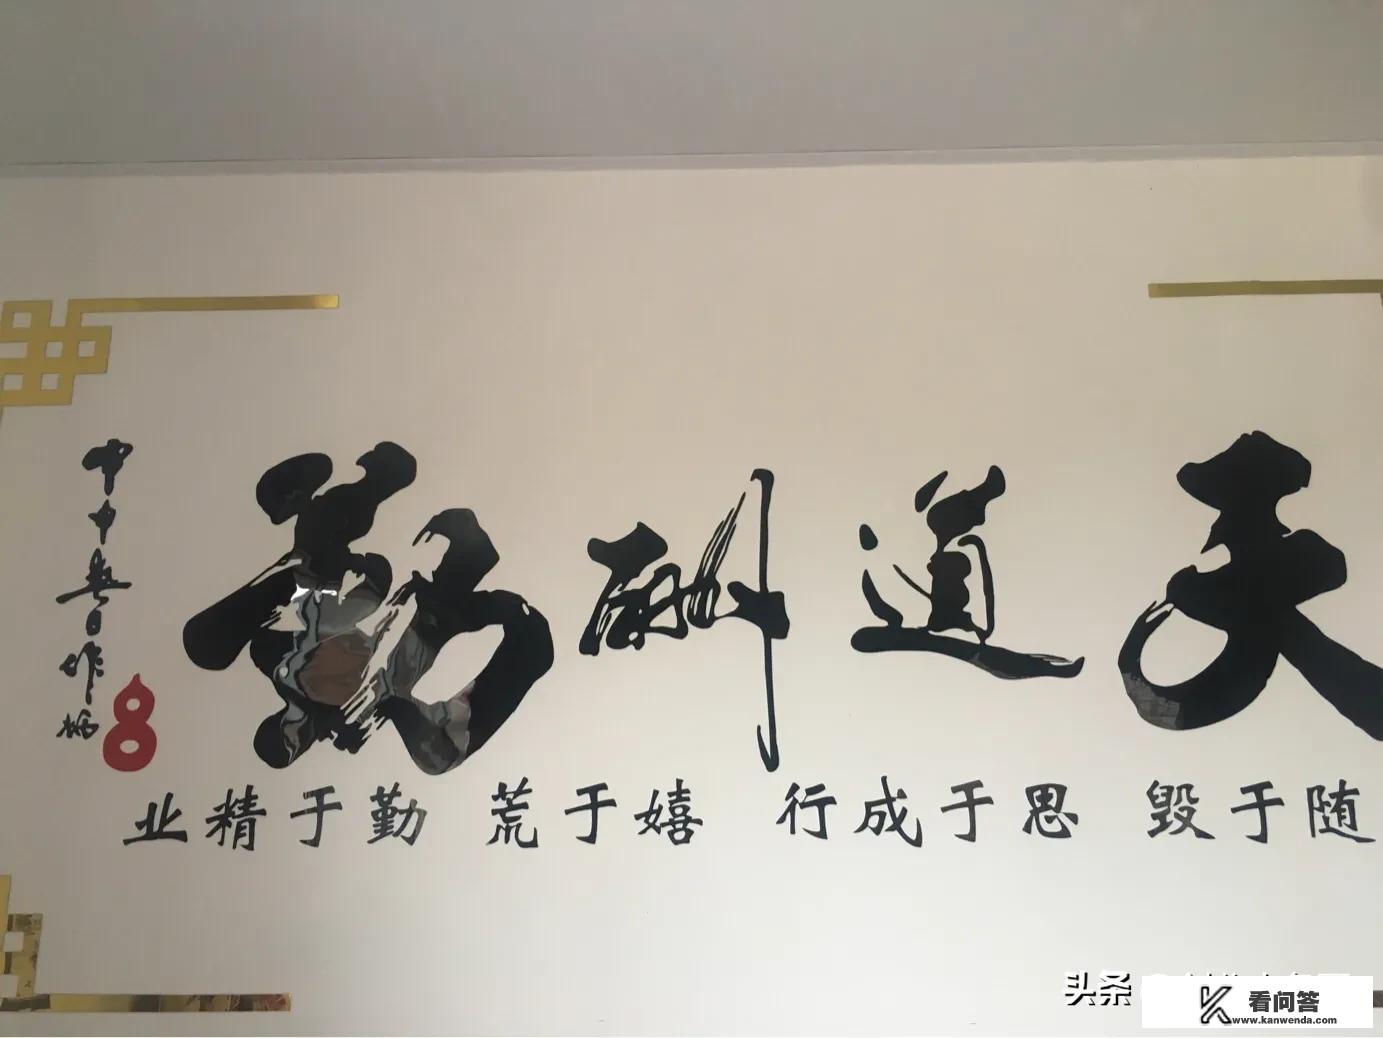 天道酬勤
业精于勤 荒于嬉 行成于思 毁于随
头条
看问答
www.kanwenda.com